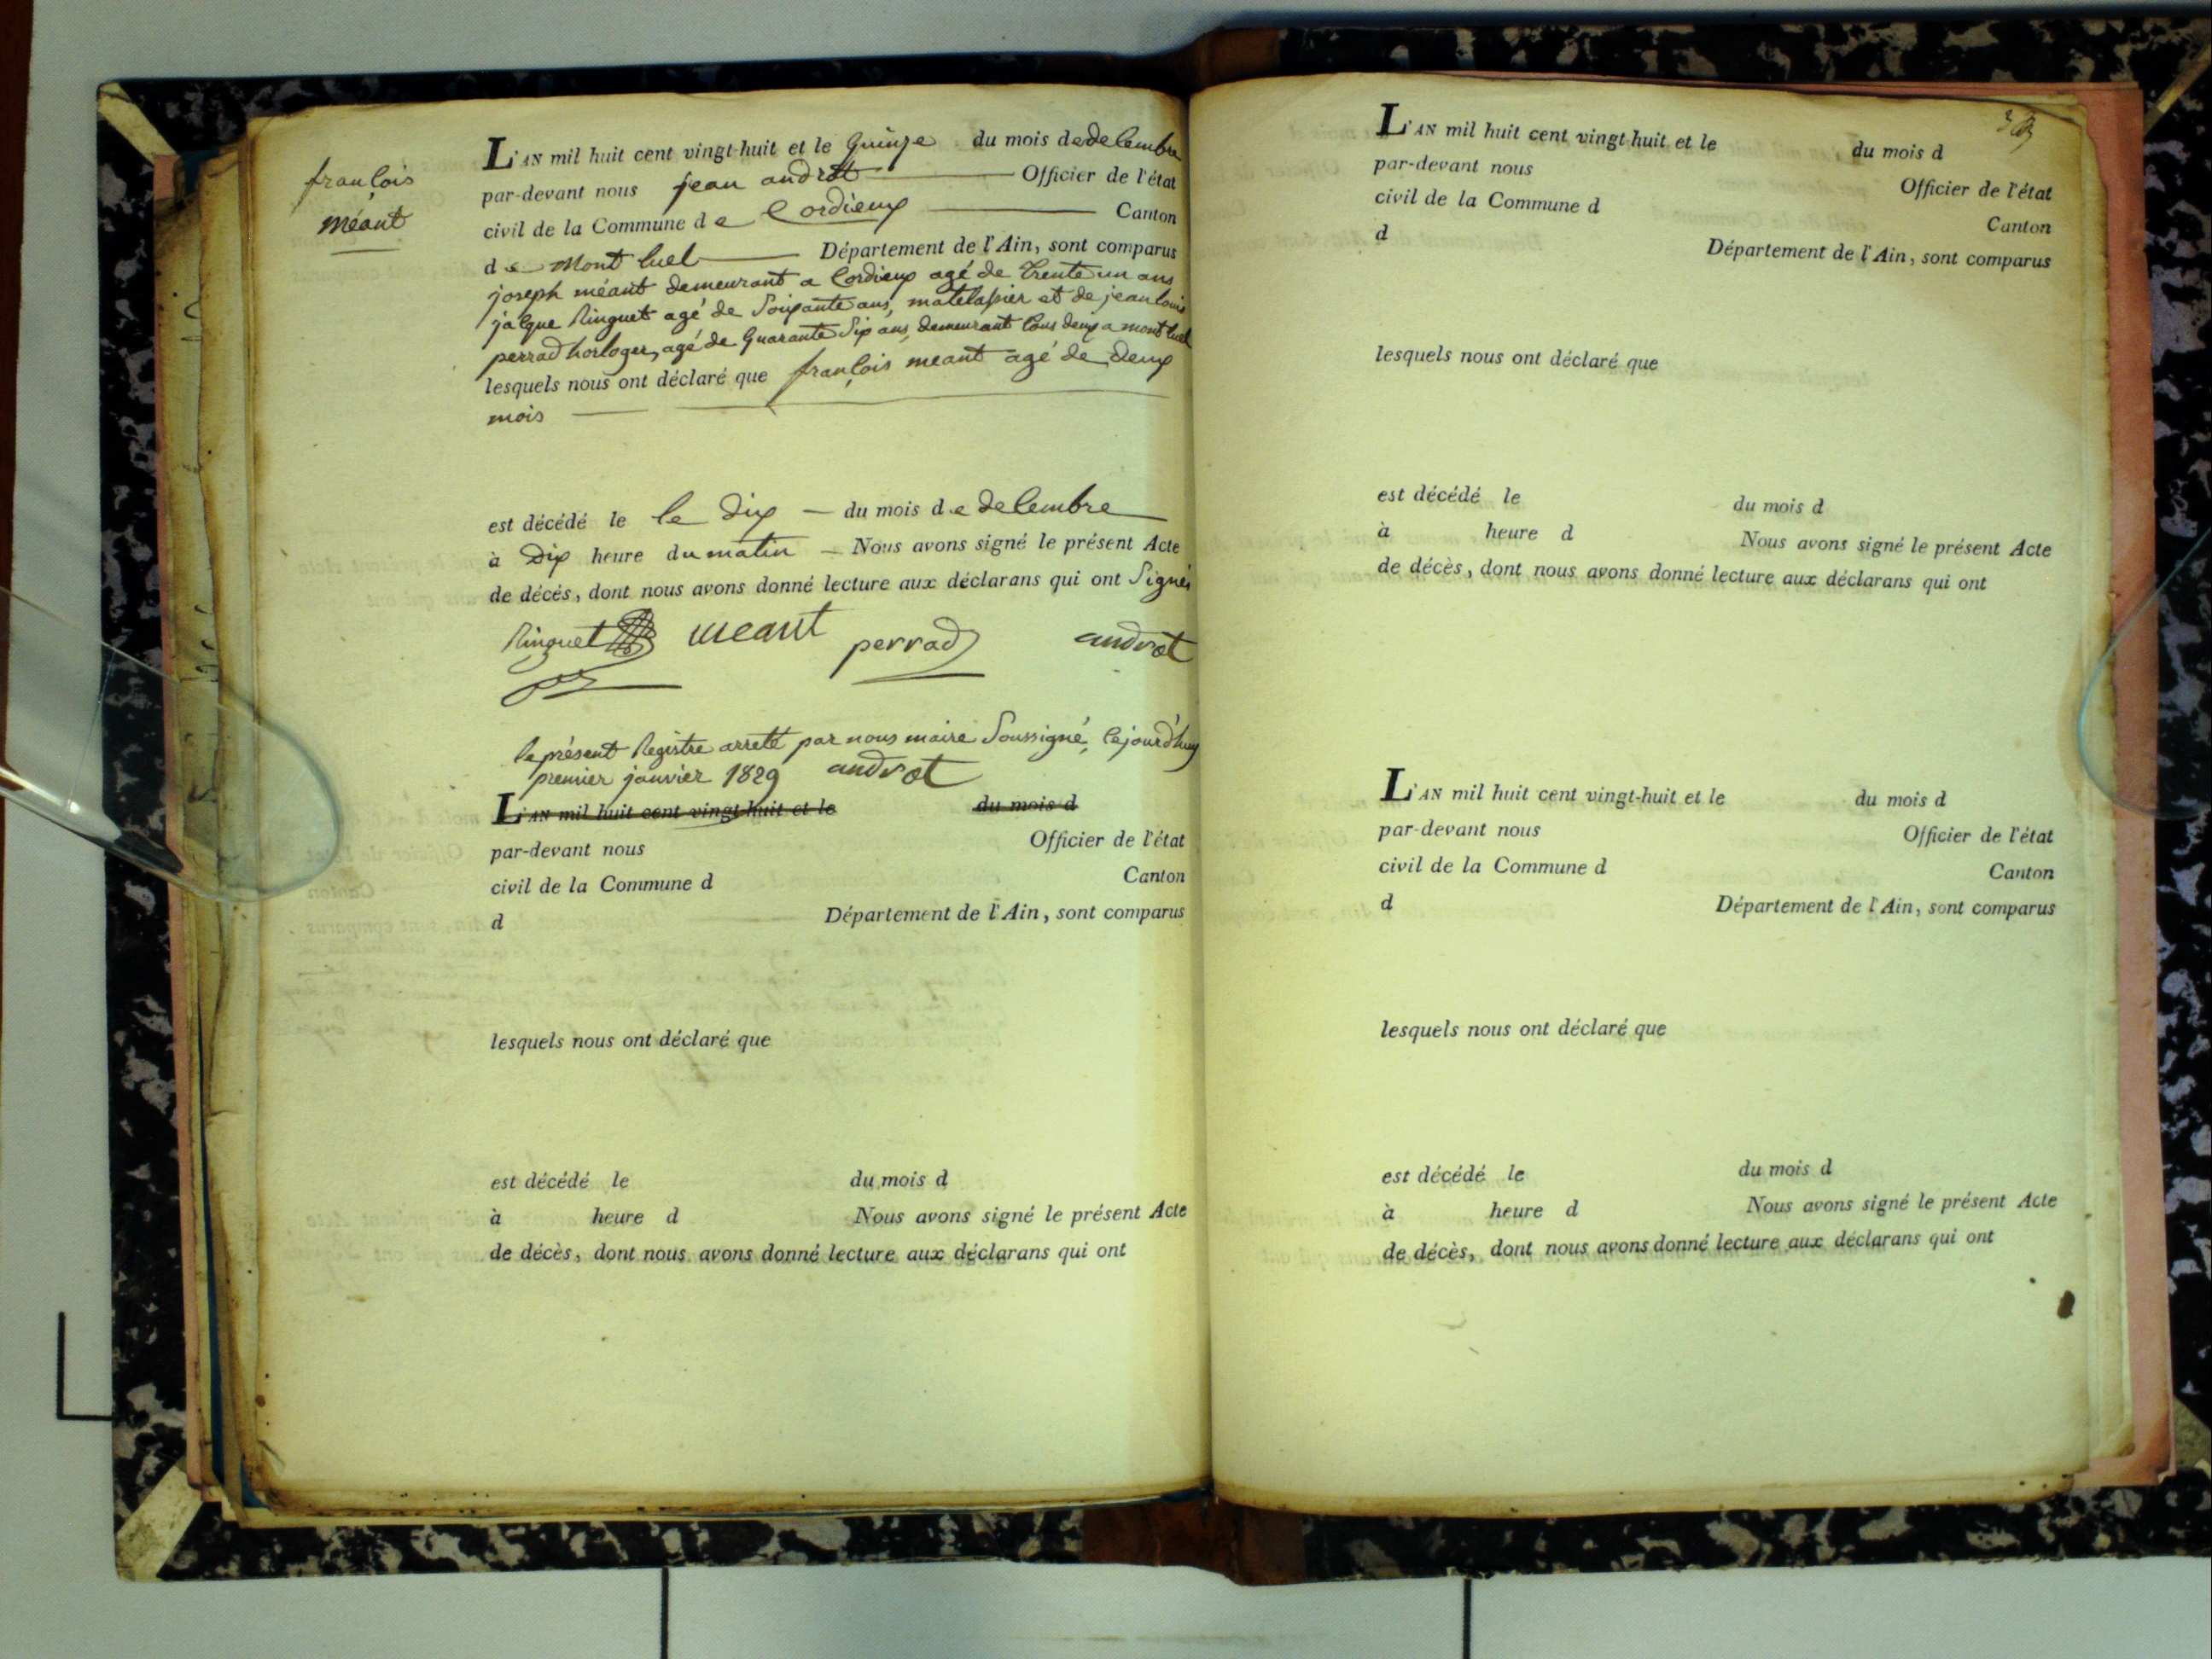 françois
méant
L'AN mil huit cent vingt-huit et le Quinze du mois de decembre
par-devant nous jean andrott Officier de l'état
civil de la Commune de Cordieux Canton
de Mont luel Département de l'Ain, sont comparus
joseph méant demeurant a Cordieux agé de trente un ans
jacque Ringuet agé de Soixante ans, matelassier et de jean louis
perrad horloger, agé de Quarante Six ans, demeurant tous deux a mont luel
lesquels nous ont déclaré que françois meant agé de deux
mois
est décédé le le dix du mois de decembre
à Dix heure du matin Nous avons signé le présent Acte
de décés, dont nous avons donné lecture aux déclarans qui ont Signés
Ringuet meant perrad androt
le présent Registre arreté par nous maire Soussigné, cejourd'huy
premier janvier 1829 androt
L'AN mil huit cent vingt-huit et le du mois d
par-devant nous Officier de l'état
civil de la Commune d Canton
d Département de l'Ain, sont comparus
lesquels nous ont déclaré que
est décédé le du mois d
à heure d Nous avons signé le présent Acte
de décès, dont nous avons donné lecture aux déclarans qui ont
L'AN mil huit cent vingt-huit et le du mois d
par-devant nous Officier de l'état
civil de la Commune d Canton
d Département de l'Ain, sont comparus
lesquels nous ont déclaré que
est décédé le du mois d
à heure d Nous avons signé le présent Acte
de décès, dont nous avons donné lecture aux déclarans qui ont
L'AN mil huit cent vingt-huit et le du mois d
par-devant nous Officier de l'état
civil de la Commune d Canton
d Département de l'Ain, sont comparus
lesquels nous ont déclaré que
est décédé le du mois d
à heure d Nous avons signé le présent Acte
de décès, dont nous avons donné lecture aux déclarans qui ont